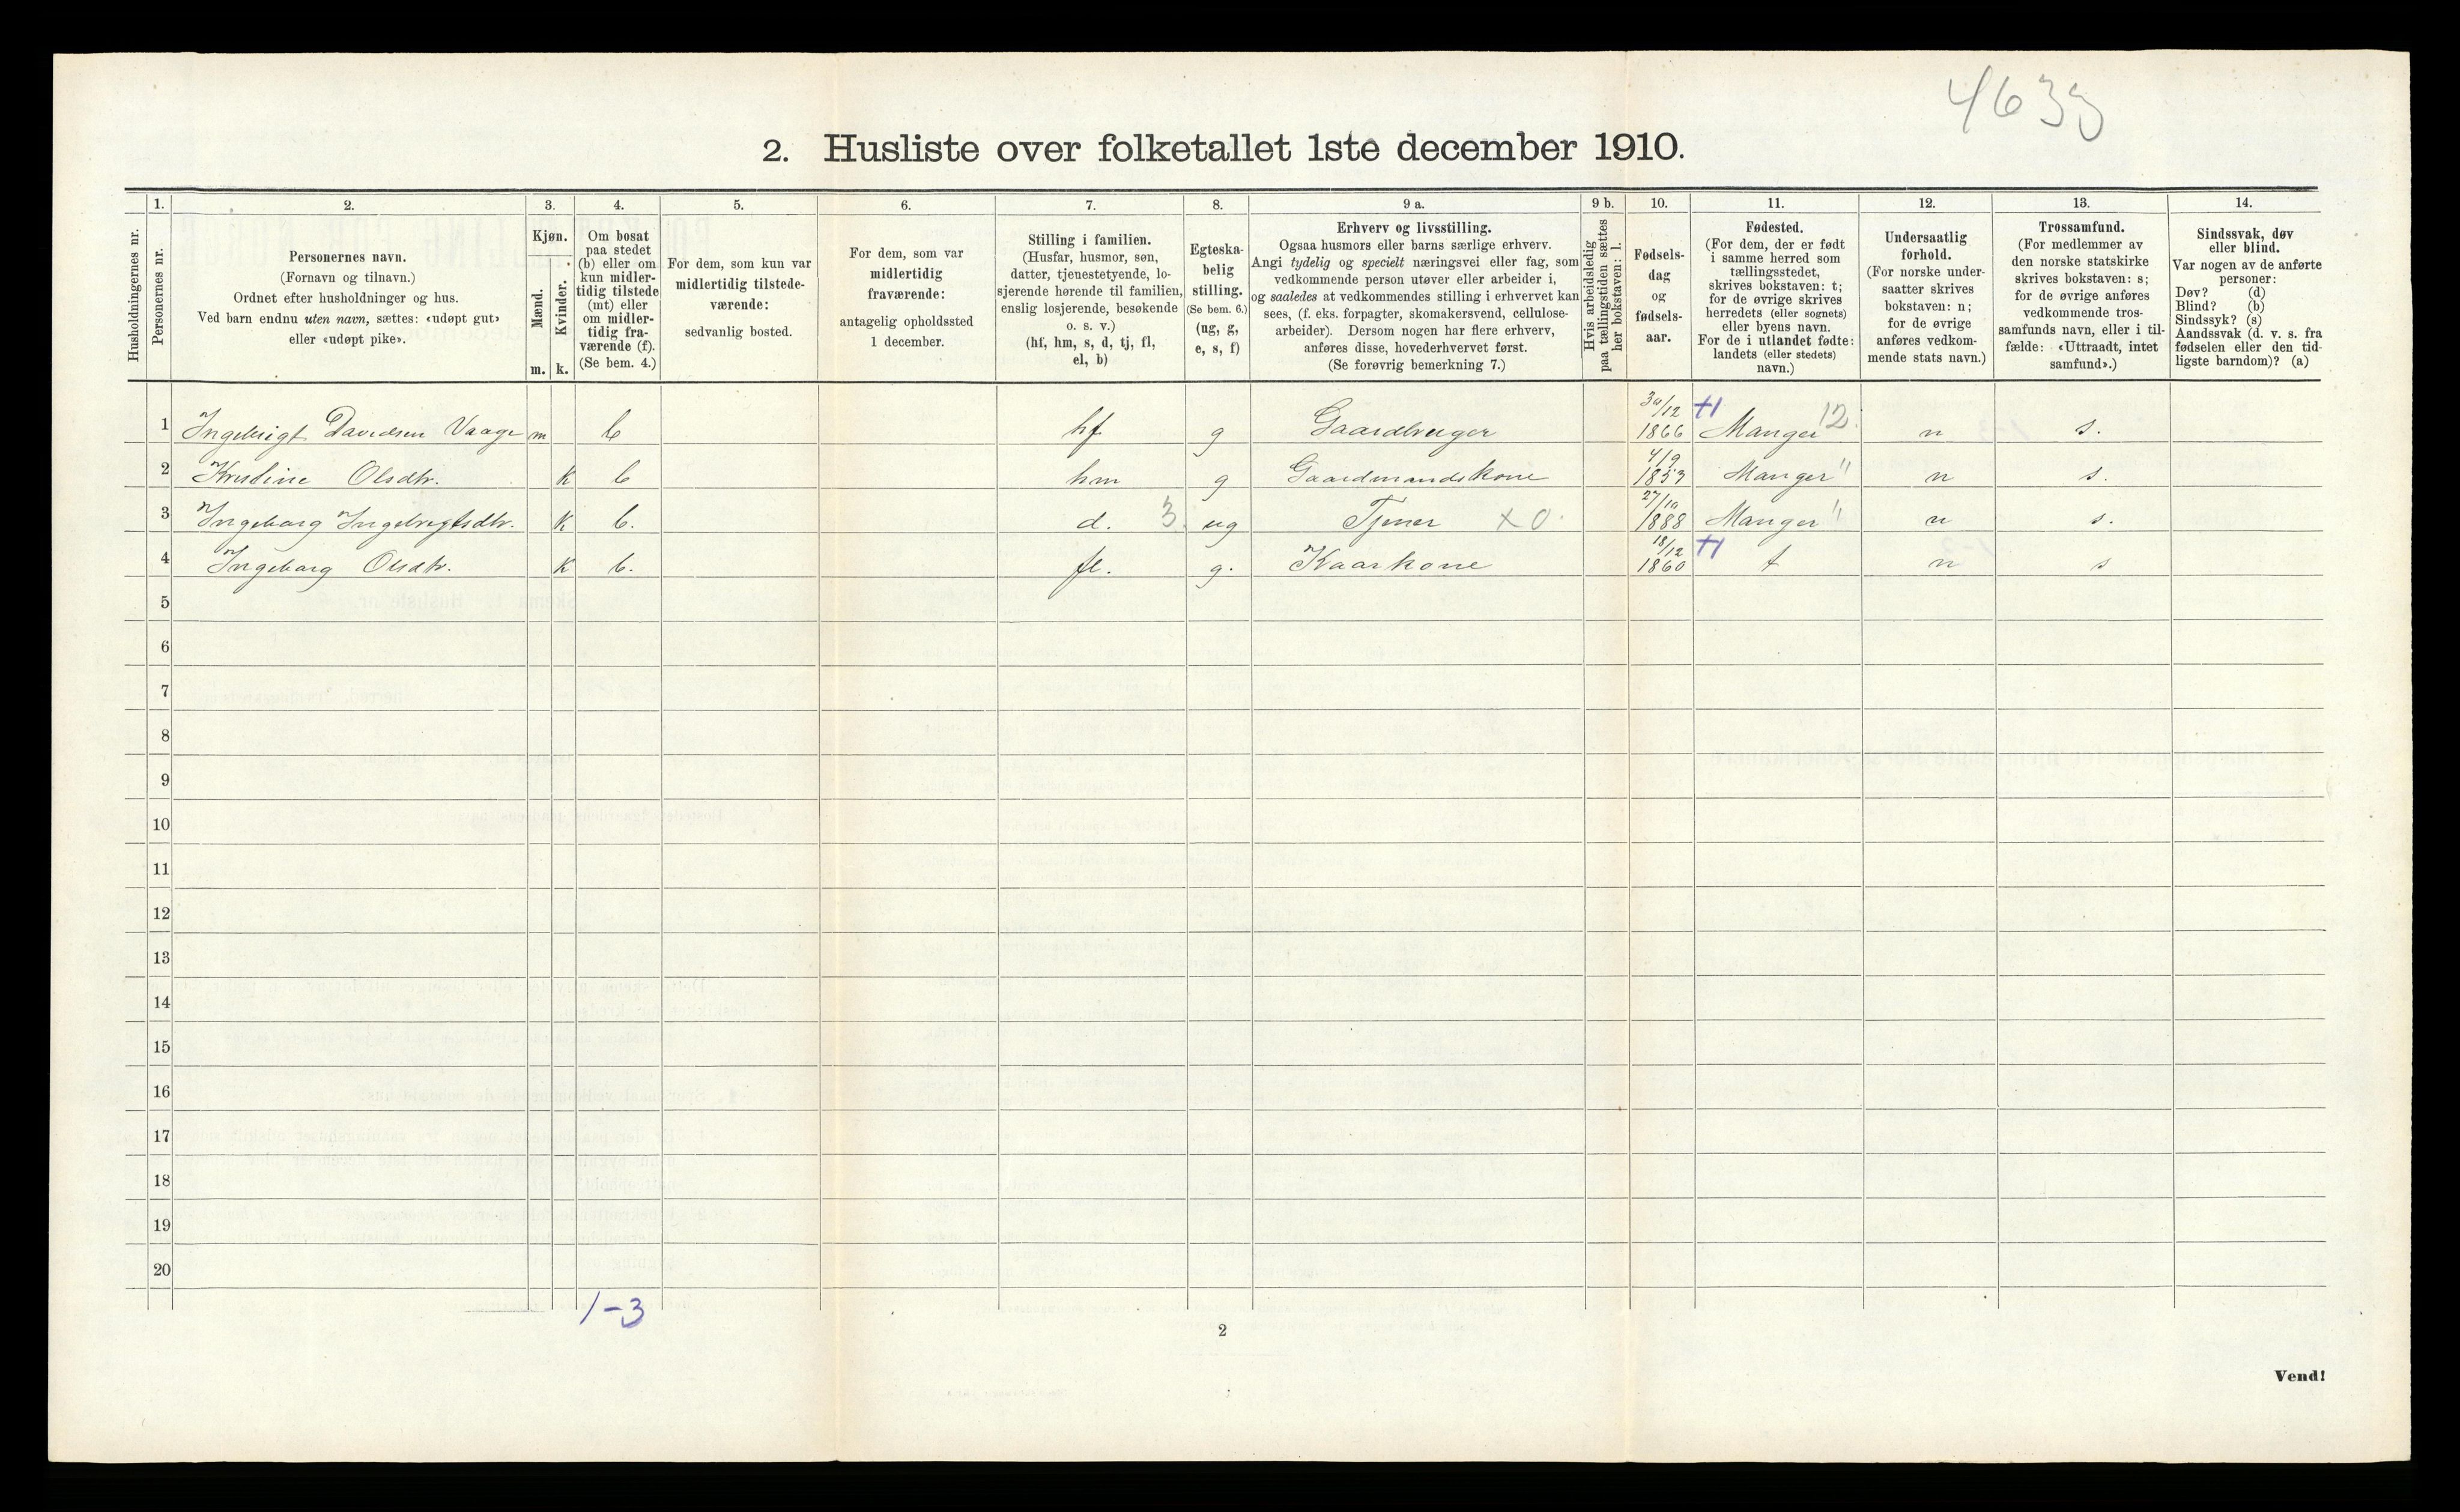 463
2. Husliste over folketallet 1ste december 1910.
Husholdningernes nr.
1.
Personernes nr.
2.
Personernes navn.
(Fornavn og tilnavn.)
Ordnet efter husholdninger og hus.
Ved barn endnu uten navn, sættes: «udøpt gut»
eller «udøpt pike».
3.
Kjøn.
Mænd.
Kvinder.
m. k.
4.
Om bosat
paa stedet
(b) eller om
kun midler-
tidig tilstede
(mt) eller
om midler-
tidig fra-
værende (f).
(Se bem. 4.)
5.
For dem, som kun var
midlertidig tilstede-
værende:
sedvanlig bosted.
6.
For dem, som var
midlertidig
fraværende:
antagelig opholdssted
1 december.
7.
Stilling i familien.
(Husfar, husmor, søn,
datter, tjenestetyende, lo-
sjerende hørende til familien,
enslig losjerende, besøkende
o. s. v.)
(hf, hm, s, d, tj, fl,
el, b)
8.
Egteska-
belig
stilling.
(Se bem. 6.)
(ug, g,
e, s, f)
9 a.
Erhverv og livsstilling.
Ogsaa husmors eller barns særlige erhverv.
Angi tydelig og specielt næringsvei eller fag, som
vedkommende person utøver eller arbeider i,
og saaledes at vedkommendes stilling i erhvervet kan
sees, (f. eks. forpagter, skomakersvend, cellulose-
arbeider). Dersom nogen har flere erhverv,
anføres disse, hovederhvervet først.
(Se forøvrig bemerkning 7.)
9 b.
Hvis arbeidsledig
paa tællingstiden sættes
her bokstaven: l.
10.
Fødsels-
dag
og
fødsels-
aar.
11.
Fødested.
(For dem, der er født
i samme herred som
tællingsstedet,
skrives bokstaven: t;
for de øvrige skrives
herredets (eller sognets)
eller byens navn.
For de i utlandet fødte:
landets (eller stedets)
navn.)
12.
Undersaatlig
forhold.
(For norske under-
saatter skrives
bokstaven: n;
for de øvrige
anføres vedkom-
mende stats navn.)
13.
Trossamfund.
(For medlemmer av
den norske statskirke
skrives bokstaven: s;
for de øvrige anføres
vedkommende tros-
samfunds navn, eller i til-
fælde: «Uttraadt, intet
samfund».)
14.
Sindssvak, døv
eller blind.
Var nogen av de anførte
personer:
Døv? (d)
Blind? (b)
Sindssyk? (s)
Aandssvak (d. v. s. fra
fødselen eller den tid-
ligste barndom)? (a)
1 Ingebrigt Davidsen Vaage m b hf g Gaardbruger 30/12 1866 Manger 12. n s.
2 Kristine Olsdtr. k b hm g Gaardmandskone 4/9 1853 Manger " n s.
3 Ingeborg Ingebrigtsdtr. k b. d. 3 ug Tjener x 0. 27/10 1888 Manger " n s.
4 Ingeborg Olsdtr. k b. fl. g. Kaarkone 18/12 1860 t n s
5
6
7
8
9
10
11
12
13
14
15
16
17
18
19
20
1-3
2
Vend!